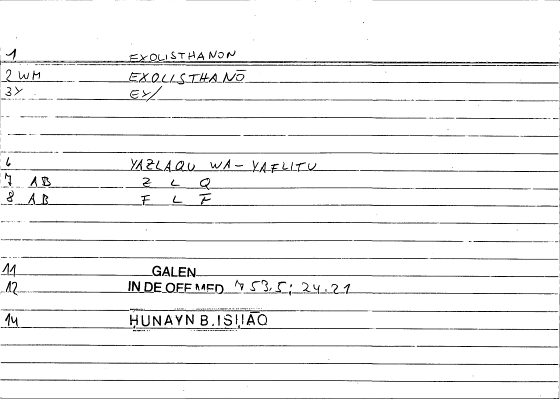 1 EXOLISTHANON
2 WM EXOLISTHANŌ
3Y EX/
6 YAZLAQU WA-YAFLITU
7 AB Z L Q
8 AB F L
11 GALEN
12 IN DE OFF MED 753.5; 24.21
14 ḤUNAYN B. ISḤĀQ